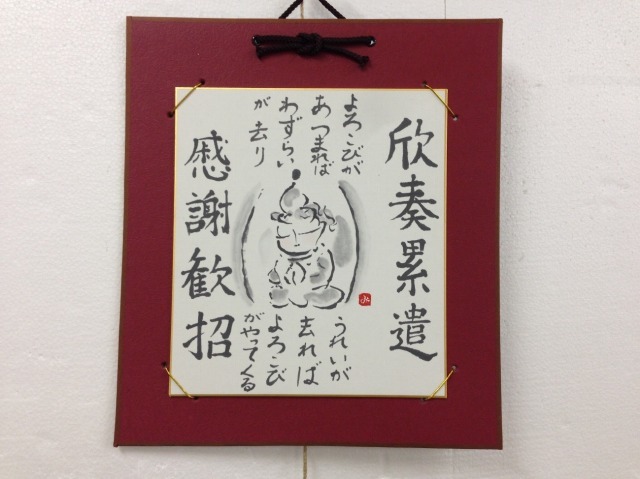 欣奏累遣
よろこびが
あつまれば
わずらい
が去り
うれいが
去れば
よろこび
がやってくる
慼謝歓招